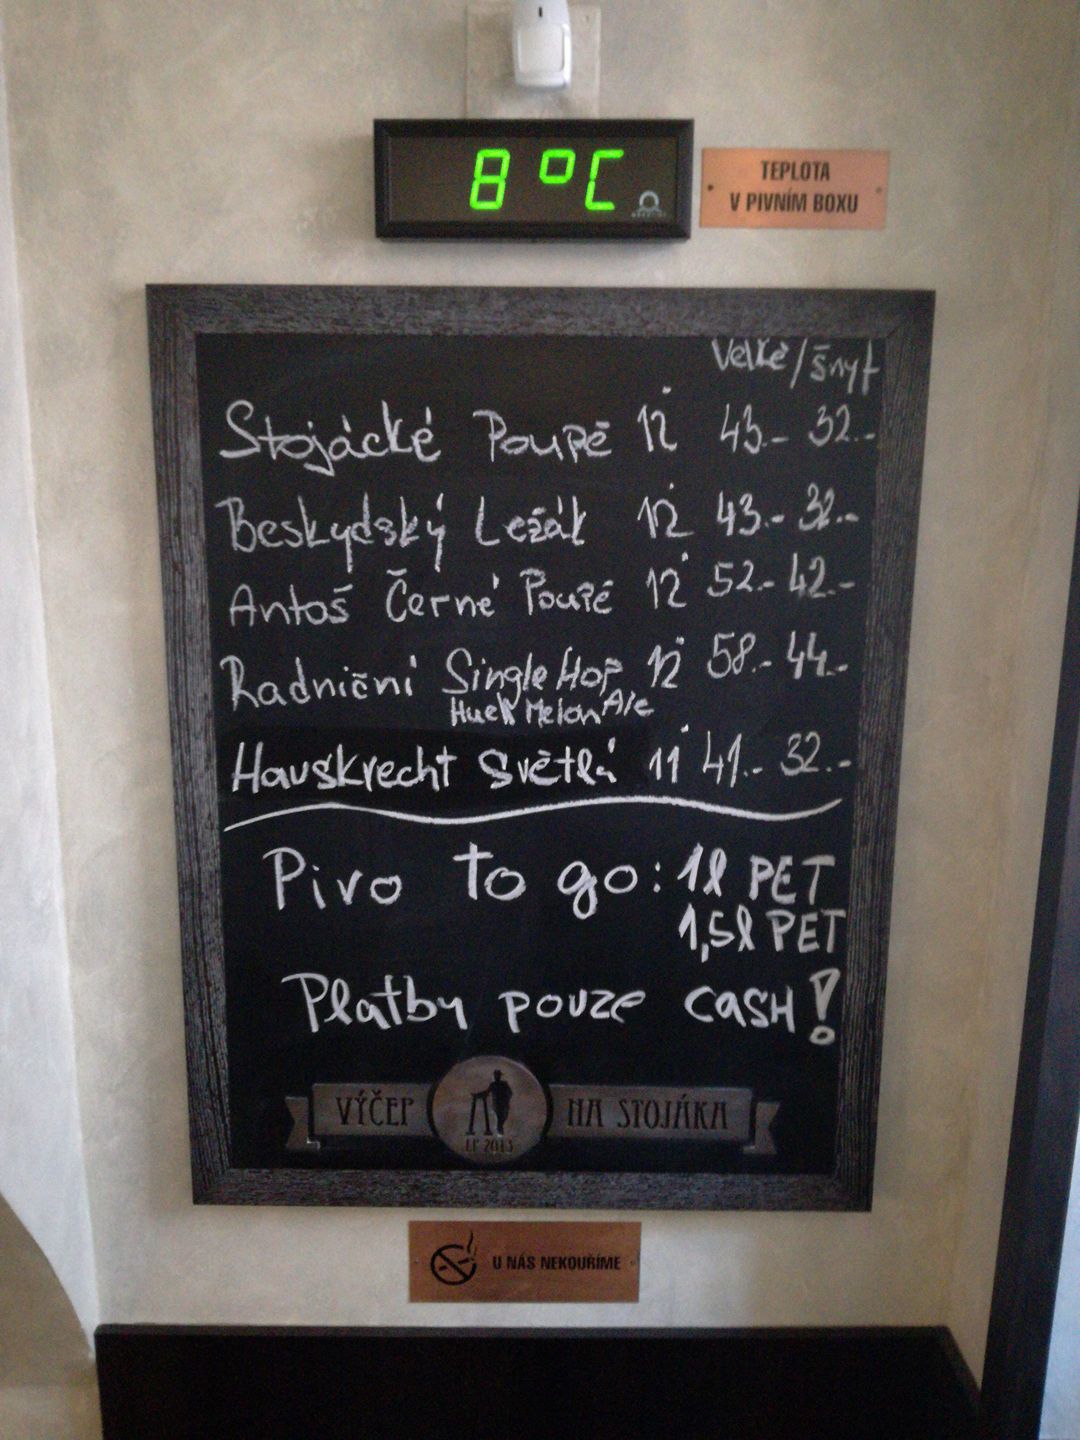 8 °C
TEPLOTA
V PIVNÍM BOXU
Velké/šnyt
Stojácké Poupě 12° 43.- 32.-
Beskydský Ležák 12° 43.- 32.-
Antoš Černé Poupě 12° 52.- 42.-
Radniční Single Hop 12° 58.- 44.-
Huell Melon Ale
Hauskrecht Světlá 11° 41.- 32.-
Pivo to go: 1l PET
1,5l PET
Platby pouze CASH!
VÝČEP NA STOJÁKA
LP 2013
U NÁS NEKOUŘÍME